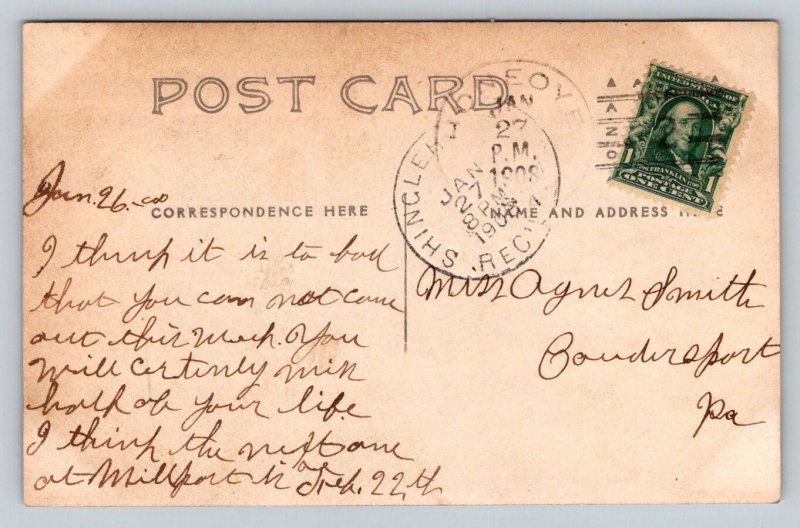 POST CARD
JAN
27
P.M.
1908
SHINGLEH
REC'D
JAN
28
7 PM
190
UNITED STATES OF AMERICA
1 FRANKLIN 1
POSTAGE
ONE CENT
Jan. 26.-08
CORRESPONDENCE HERE
NAME AND ADDRESS HERE
I think it is to bad
that you can not come
out this week. You
will certenly miss
half of your life
I think the next one
at Millport is Feb. 22th
Miss Agnes Smith
Coudersport
Pa